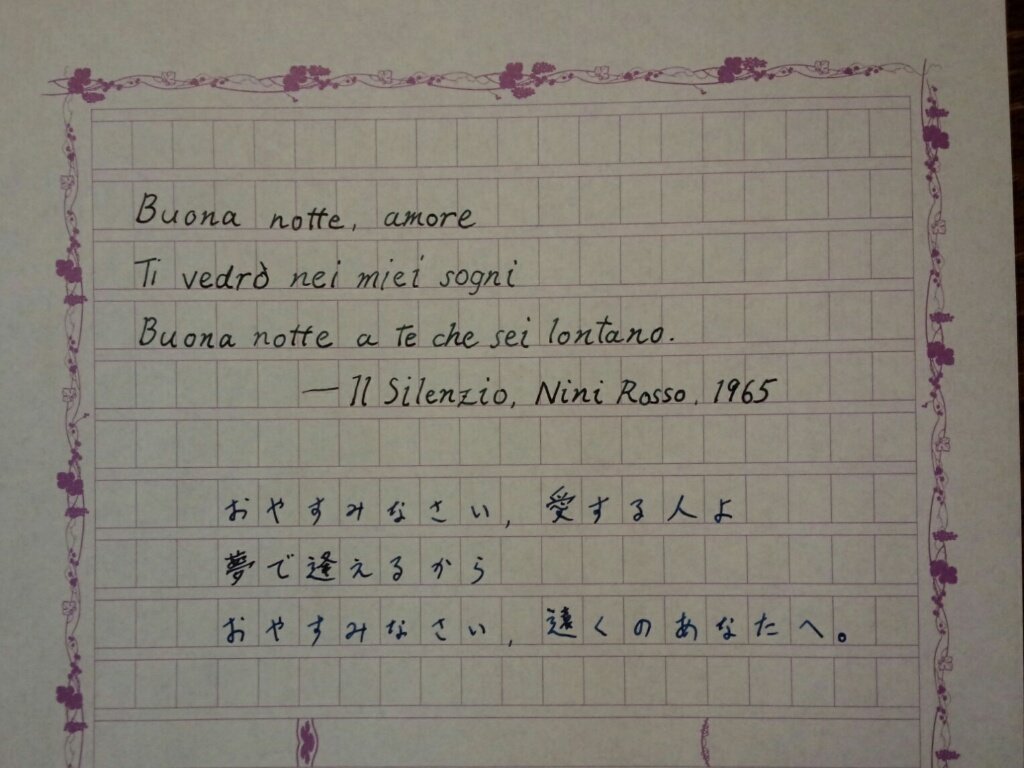 Buona notte, amore
Ti vedrò nei miei sogni
Buona notte a te che sei lontano.
— Il Silenzio, Nini Rosso, 1965
おやすみなさい, 愛する人よ
夢で逢えるから
おやすみなさい, 遠くのあなたへ。